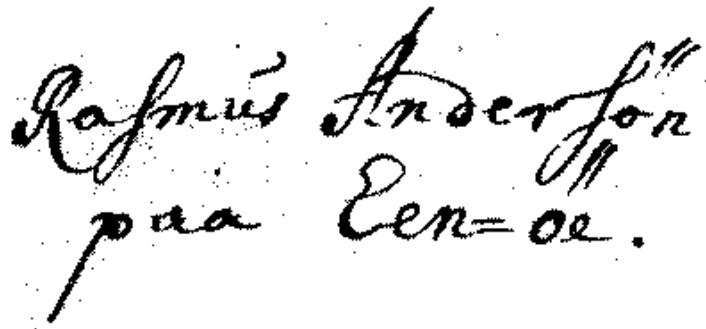 Rasmus Andersön
paa Een=öe.